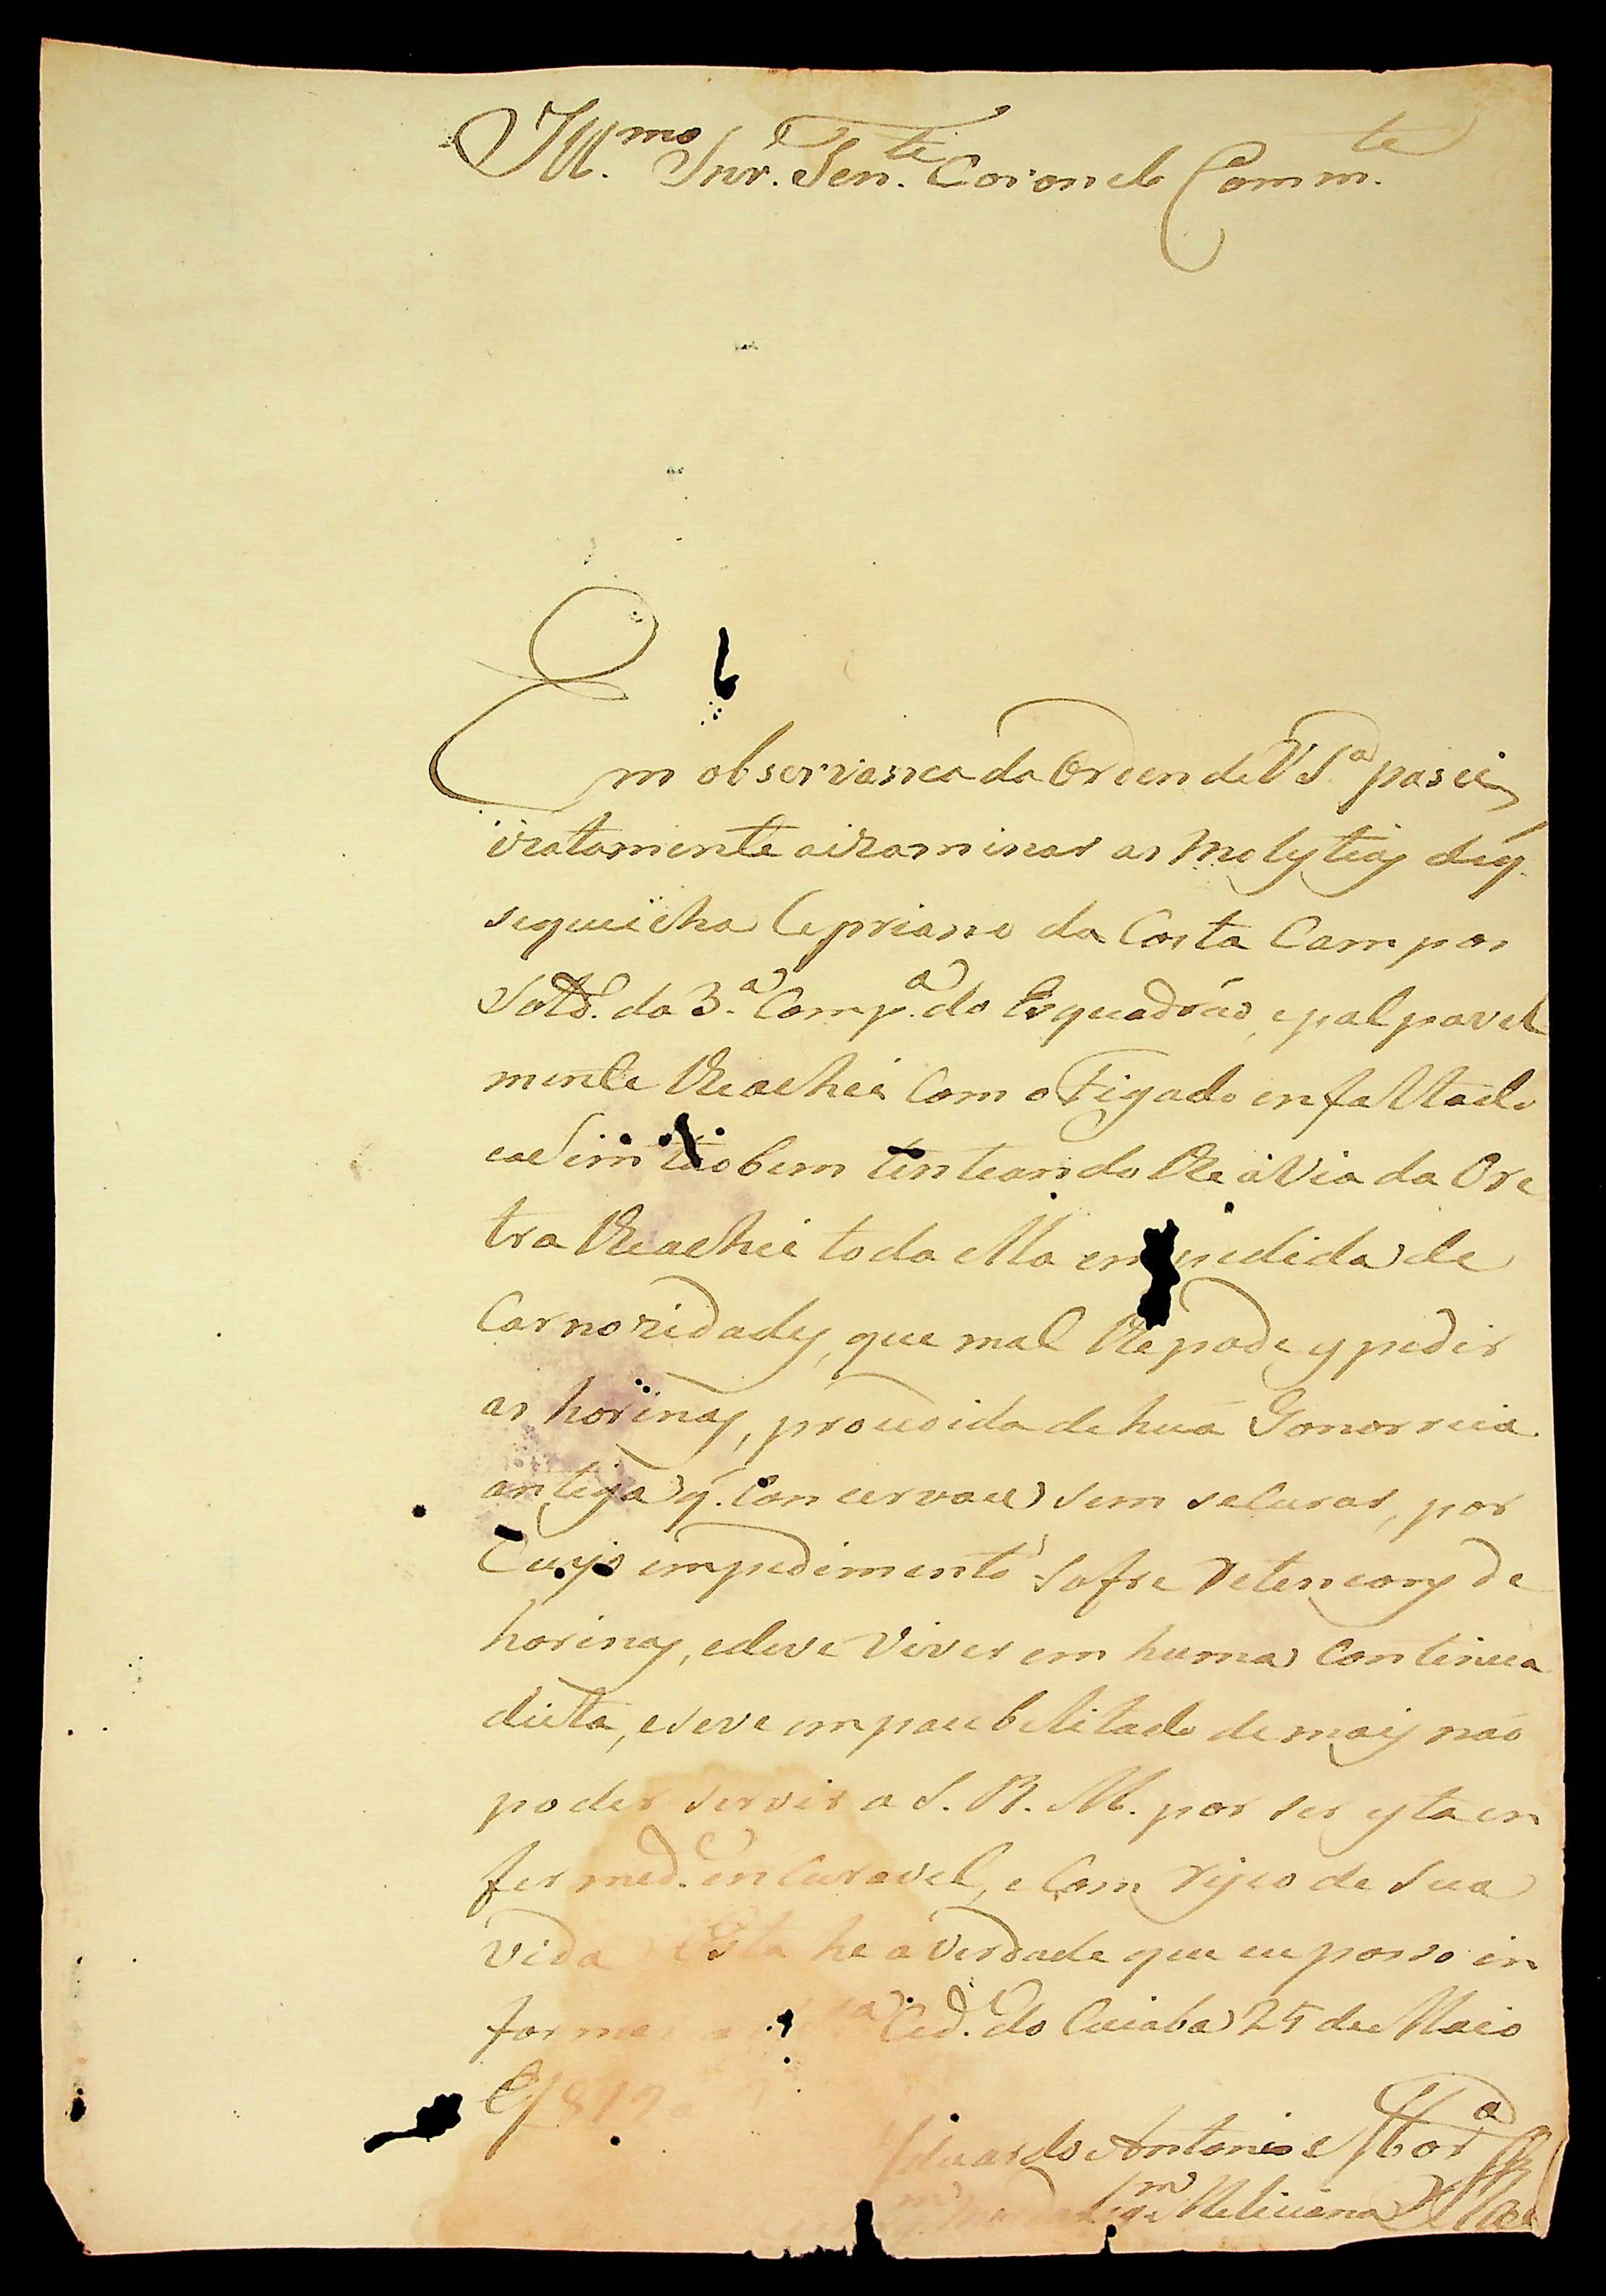 Ill.mo Snr. Ten.te Coronel Comm.te
Em observanca da Ordem de V S.a pasei
izatamente aizaminar as molestias de q.
sequeicha Cepriano da Costa Campos
Sold. da 3.a Comp.a do Esquadrão, epalpavel
mente lheachei Com o Figado enfaltado
easim tãobem tenteando lhe aVia da Ore
tra lheachei toda ella empedida de
Carnozidades, que mal lhe pode espedir
as horinas, proucoida de huã Gonorreia
antiga q. Concervou sem securar, por
Cujo empedimento Sofre Retencons de
horinas, edeve Viver em huma Continua
dieta, eseve impocebelitado demais não
poder servir a S. R. M. por ser esta en
fermed.e encuravel, e Com risco de Sua
vida Esta he aVerdade que eu posso in
formar Cid.e do Cuiaba 25 de Maio
de 1812
Eduardo Antonio
Meliciana